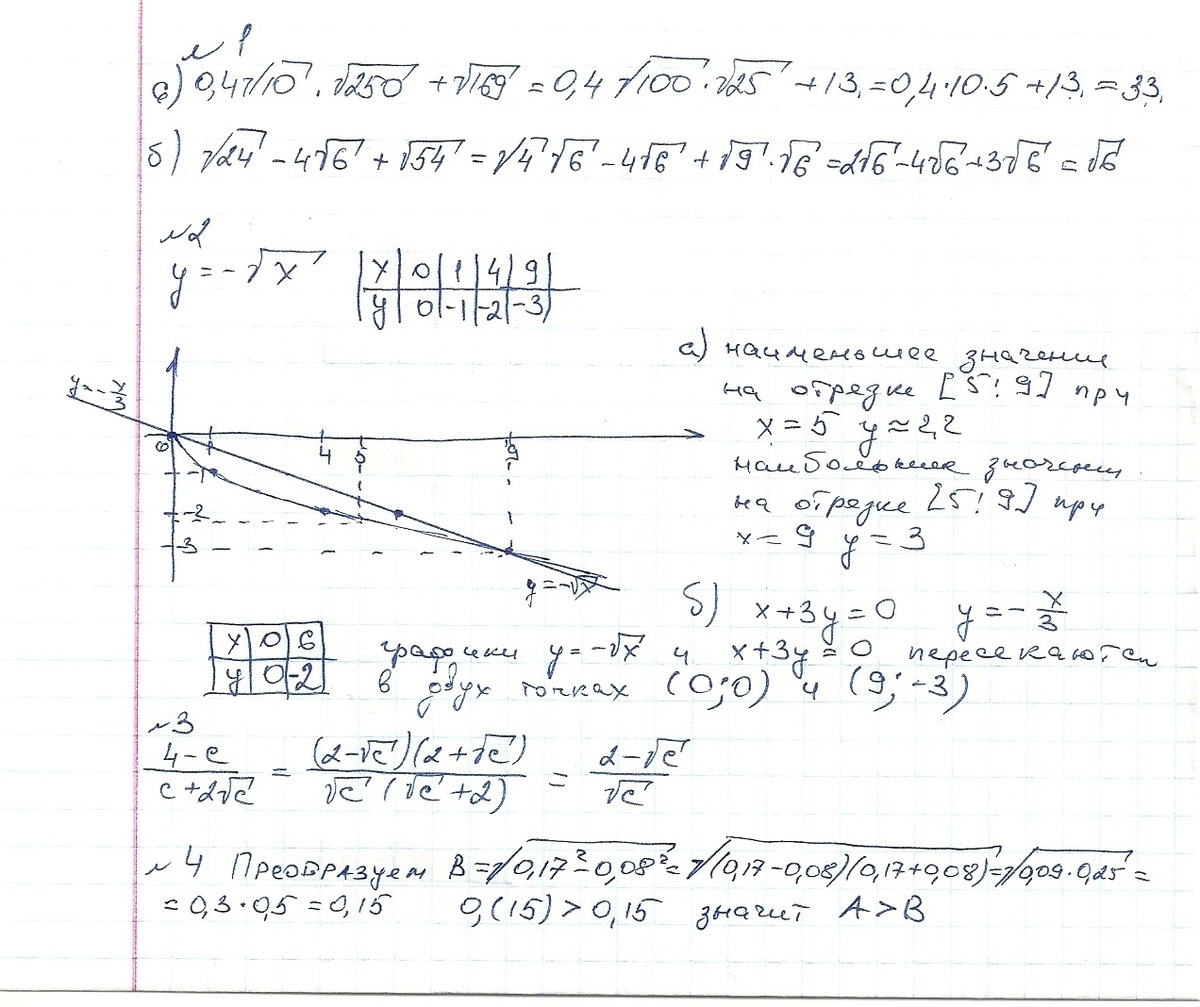 № 1
а) 0,4√10 · √250 + √169 = 0,4 √100 · √25 + 13 = 0,4·10·5 + 13 = 33.
б) √24 - 4√6 + √54 = √4 √6 - 4√6 + √9 · √6 = 2√6 - 4√6 + 3√6 = √6
№2
y = -√x
x | 0 | 1 | 4 | 9
y | 0 | -1 | -2 | -3
y = -x/3
0 1 4 5 9
-1
-2
-3
y = -√x
а) наименьшее значение
на отрезке [5; 9] при
x = 5 y ≈ 2,2
наибольшее значение
на отрезке [5; 9] при
x = 9 y = 3
б) x + 3y = 0 y = - x/3
x | 0 | 6
y | 0 | -2
графики y = -√x и x + 3y = 0 пересекаются
в двух точках (0; 0) и (9; -3)
№3
(4 - c)/(c + 2√c) = ((2 - √c)(2 + √c))/(√c (√c + 2)) = (2 - √c)/√c
№ 4 Преобразуем B = √(0,17² - 0,08²) = √((0,17 - 0,08)(0,17 + 0,08)) = √(0,09 · 0,25) =
= 0,3 · 0,5 = 0,15 0,(15) > 0,15 значит A > B